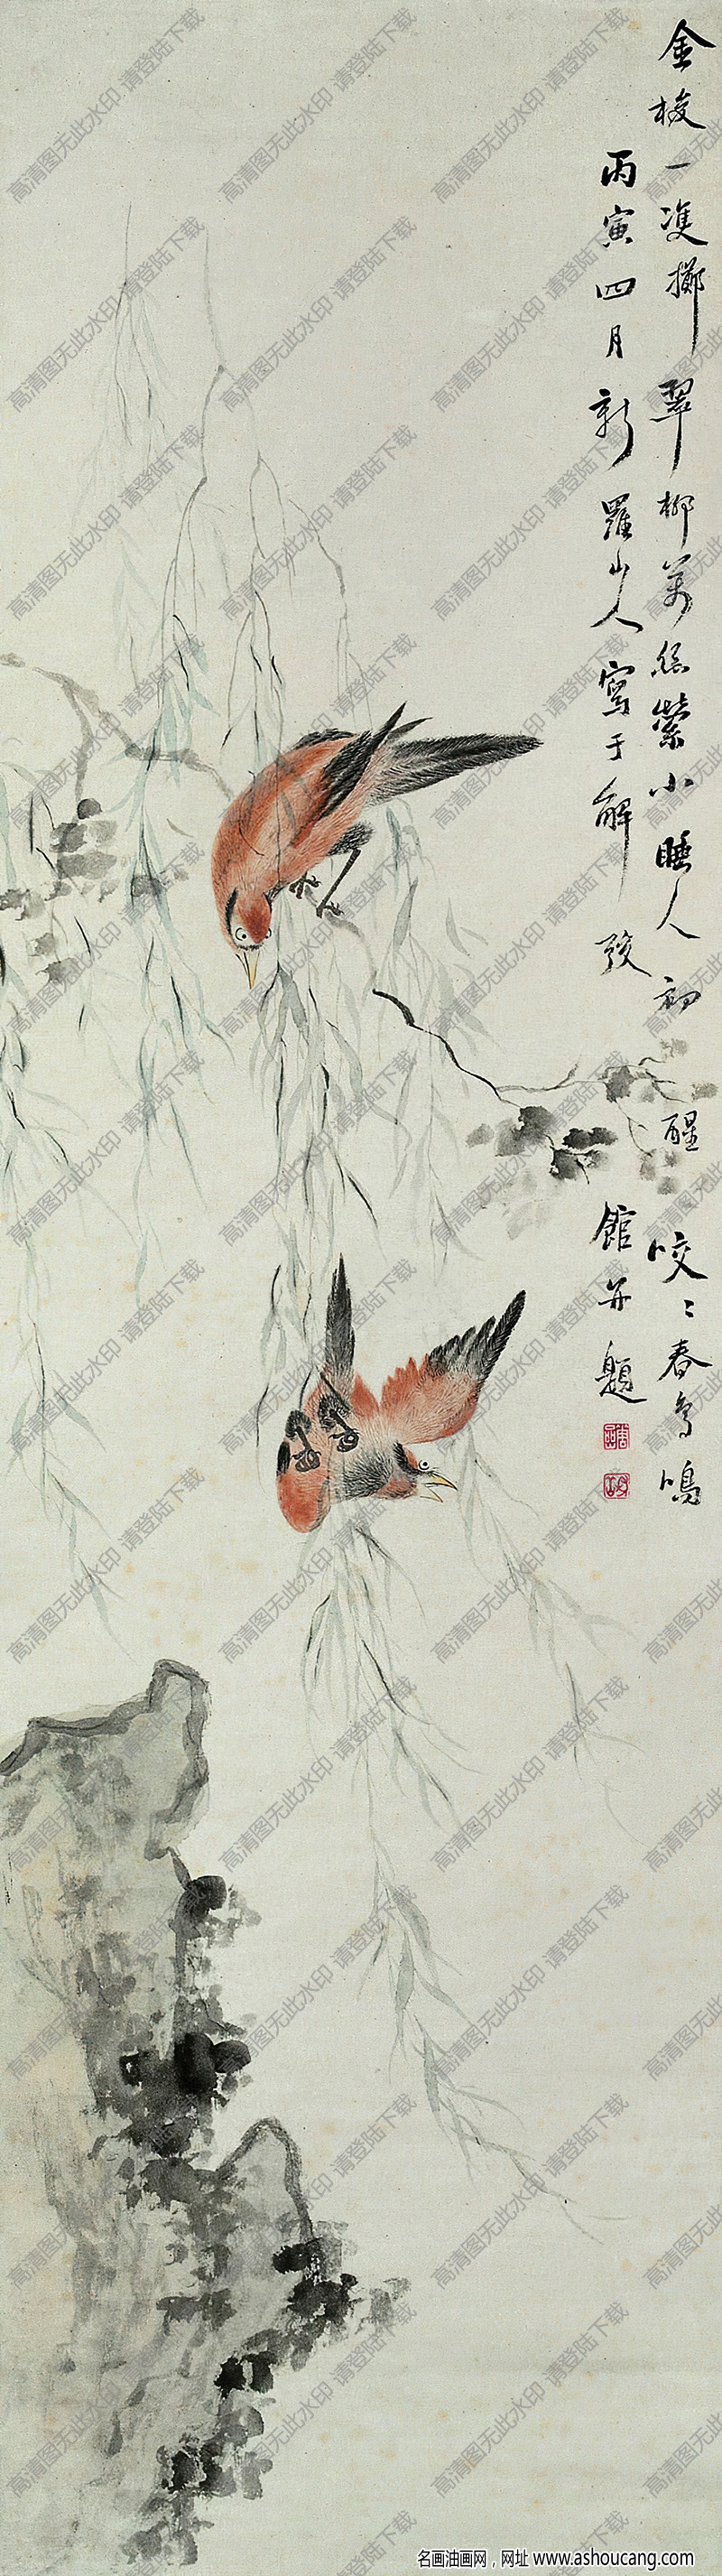 金梭一雙擲翠柳萬絲縈小睡人初醒咬〻春鳥鳴
丙寅四月新羅山人寫于解弢館并題
高清图无此水印 请登陆下载
名画油画网，网址 www.ashoucang.com